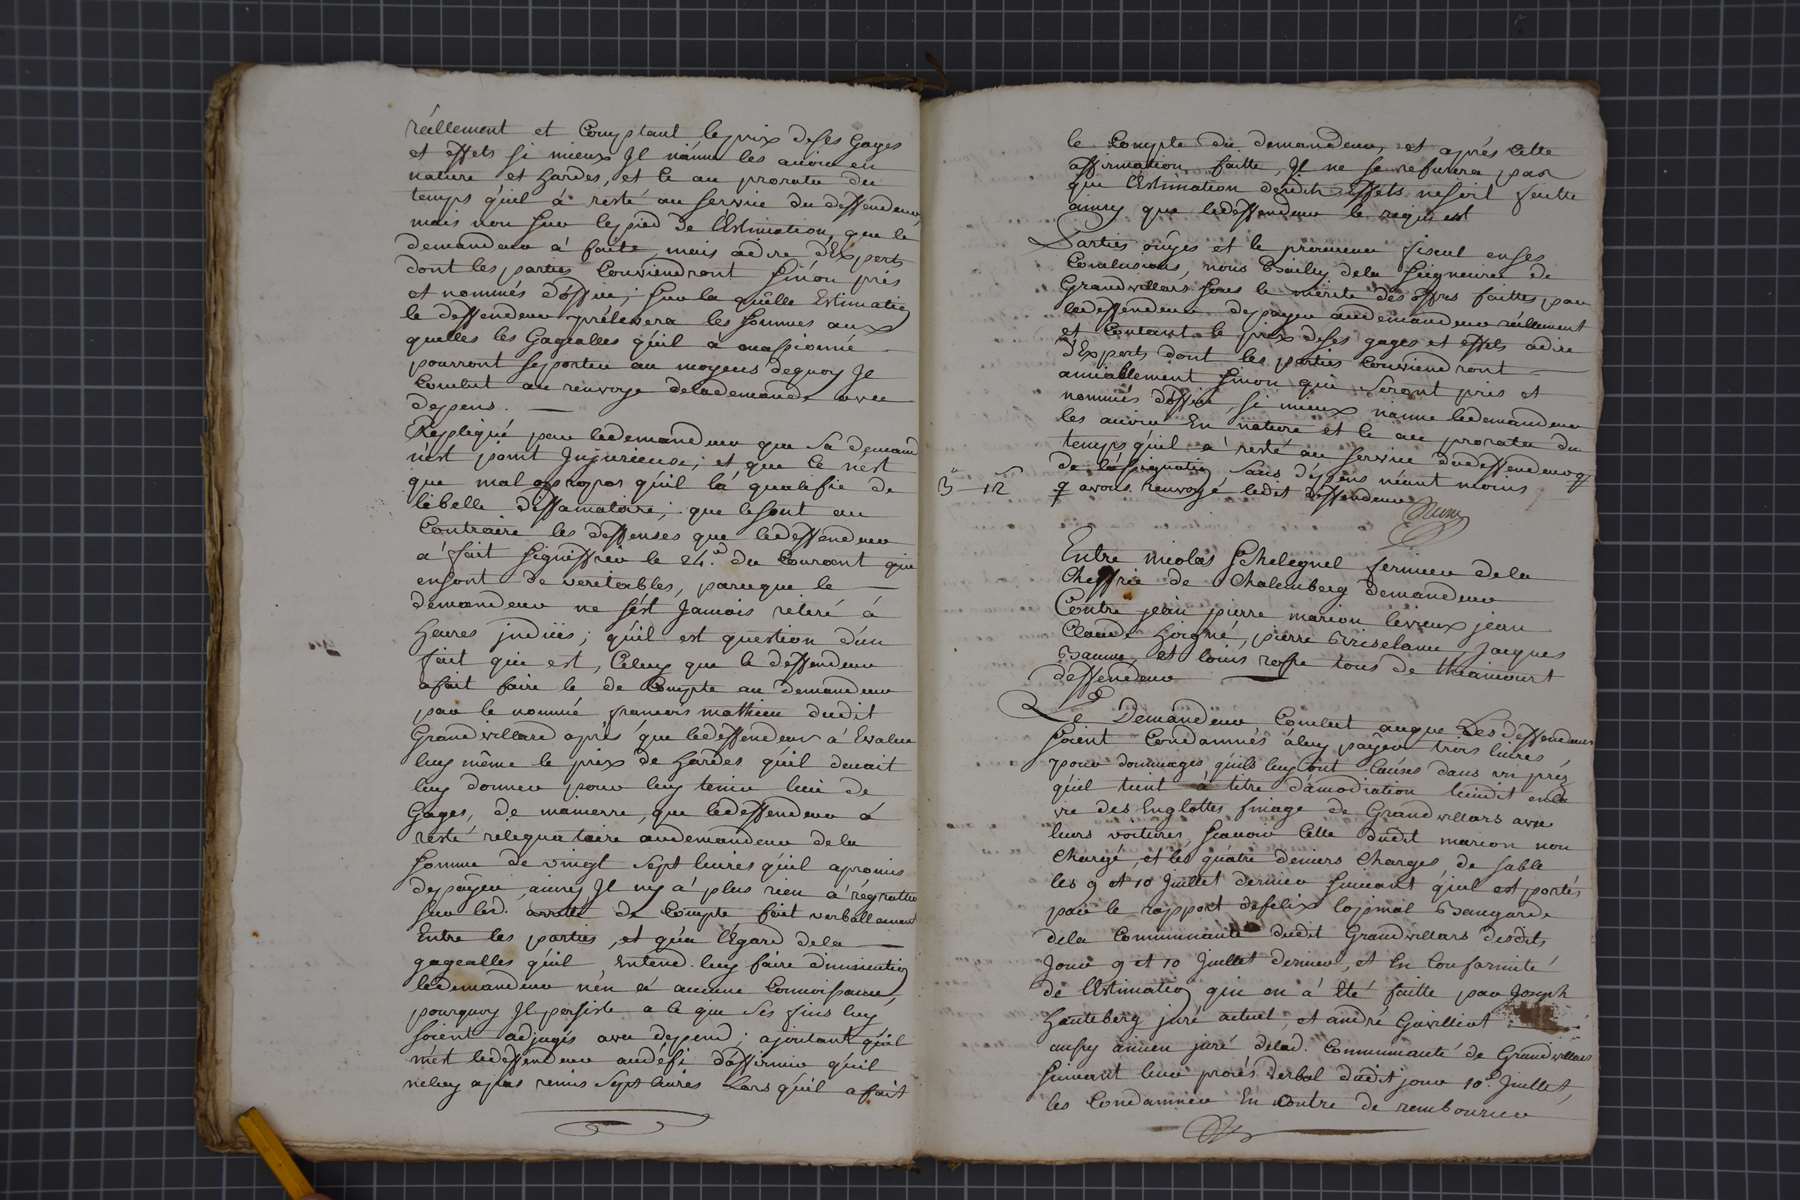 réellement et Comptant le prix de ses Gages
et effets si mieux Il n'aime les avoir en
nature et hardes, et ce au prorata du
temps qu'il à resté au service du deffendeur
mais non sur le pied de l'Estimation que le
demandeur a faite, mais a dire d'Experts
dont les parties Conviendront Sinon pris
et nommés d'office; sur la quelle Estimation
le deffendeur prélevera les sommes aux
quelles les Gagealles qu'il a
pourront se porter au moyens de quoy Il
Conclut au renvoye de la demande avec
depens.
Repliqué par le demandeur que sa demand
n'est point Injurieuse; et que Ce n'est
que mal apropos qu'il la qualifie de
libelle diffamatoire; que ce sont au
Contraire les deffenses que le deffendeur
a fait signiffier le 24.e du Courant qui
en sont de veritables, parceque le
demandeur ne s'est Jamais retiré à
heures induës; qu'il est question d'un
fait qui est, Celuy que le deffendeur
a fait faire le de Compte au demandeur
par le nommé francois mathieu dudit
Grandvillard après que le deffendeur a Evalué
luy même le prix de hardes qu'il devait
luy donner pour luy tenir lieu de
Gages, de manierre, que le deffendeur à
resté reliquataire au demandeur de la
somme de vingt sept livres qu'il a promis
de payer, ainsy Il n'y a plus rien a régratter
sur led. arrêté de Compte fait verballement
Entre les parties, et qu'a l'Egard de la
gagealles qu'il Entend luy faire diminution
le demandeur n'en a aucune Connoissance,
pourquoy Il persiste a ce que ses fins luy
soient adjugés avec depend; ajoutant qu'il
met le deffendeur au défi d'affirmer qu'il
ne luy a pas remis sept livres Lors qu'il a fait
le Compte du demandeur, et aprés Cette
affirmation faitte, Il ne se refusera pas
que l'Estimation desdits Effets ne soit faitte
ainsy que le deffendeur le requiert
Parties ouÿes et le procureur fiscal en ses
Conclusions, nous Bailly de la Seigneurie de
Grandvillars sous le mérite des offres faittes par
le deffendeur de payer au demandeur réellement
et Contant le prix de ses gages et effets a dire
d'Experts dont les parties Conviendront
amiablement sinon qui seront pris et
nommés d'office, si mieux n'aime le demandeur
les avoir En nature et ce au prorata du
temps qu'il a resté au service du deffendeur
de l'assignation sans dépens néant moins
3 - 12 avons renvoyé ledit deffendeur
Entre nicolas Schelegnel fermier de la
Cheffrie de Chalemberg demandeur
Contre jean pierre marion levieux jean
Claude hoigné, pierre Briselame, Jacques
et louis rosse tous de thiancourt
deffendeur
Le Demandeur Conclut a ce que Les deffendeurs
soient Condamnés à luy payer trois livres
pour dommages qu'ils luy ont Causés dans un préz
qu'il tient à titre d'amodiation lieudit en la
vie des Englottes finage de Grandvillars avec
leurs voitures scavoir Celle dudit marion non
Chargé, et les quatre derniers Charges de sable
les 9 et 10 Juillet dernier suivant qu'il est portés
par le rapport de felix Bangarde
de la Communauté dudit Grandvillars desdits
Jour 9 et 10 Juillet dernier, et En Conformité
de l'Estimation qui en à été faitte par Joseph
hauteberg juré actuel, et andré Gavilliat
aussy ancien juré de lad. Communauté de Grandvillars
suivant leur procès verbal dudit jour 10.e Juillet,
les Condamner En outre de rembourcer